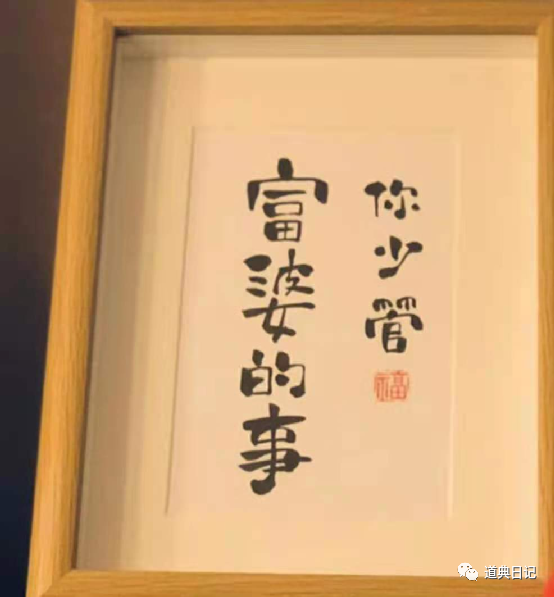 你少管
富婆的事
福
道典日记